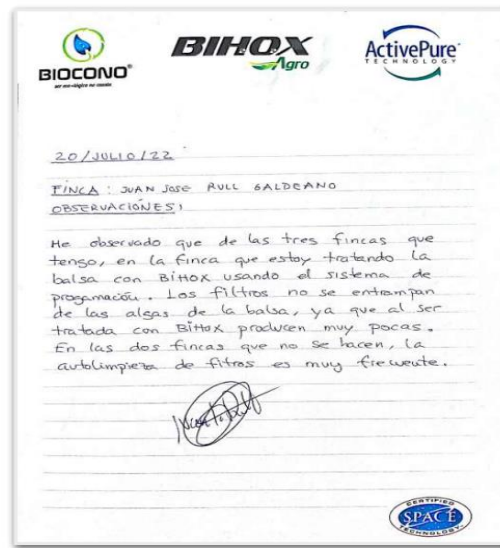 BIOCONO®
BIHOX
Agro
ActivePure
TECHNOLOGY
20/JULIO/22
FINCA: JUAN JOSE RULL GALDEANO
OBSERVACIONES:
He observado que de las tres fincas que
tengo, en la finca que estoy tratando la
balsa con BiHOX usando el sistema de
progamación. Los filtros no se entrampan
de las algas de la balsa, ya que al ser
tratada con BiHox producen muy pocas.
En las dos fincas que no se hacen, la
autolimpieza de fitros es muy frecuente.
CERTIFIED
SPACE
TECHNOLOGY